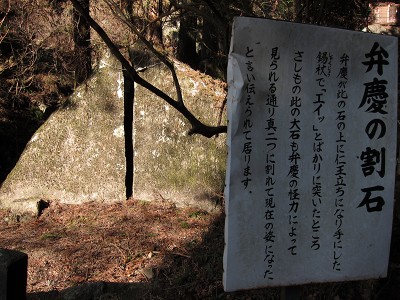 弁慶の割石
弁慶が此の石の上に仁王立ちになり手にした
錫杖で「エイッ」とばかりに突いたところ
さしもの此の大石も弁慶の怪力によって
見られる通り真二つに割れて現在の姿になった
と言い伝えられて居ります。